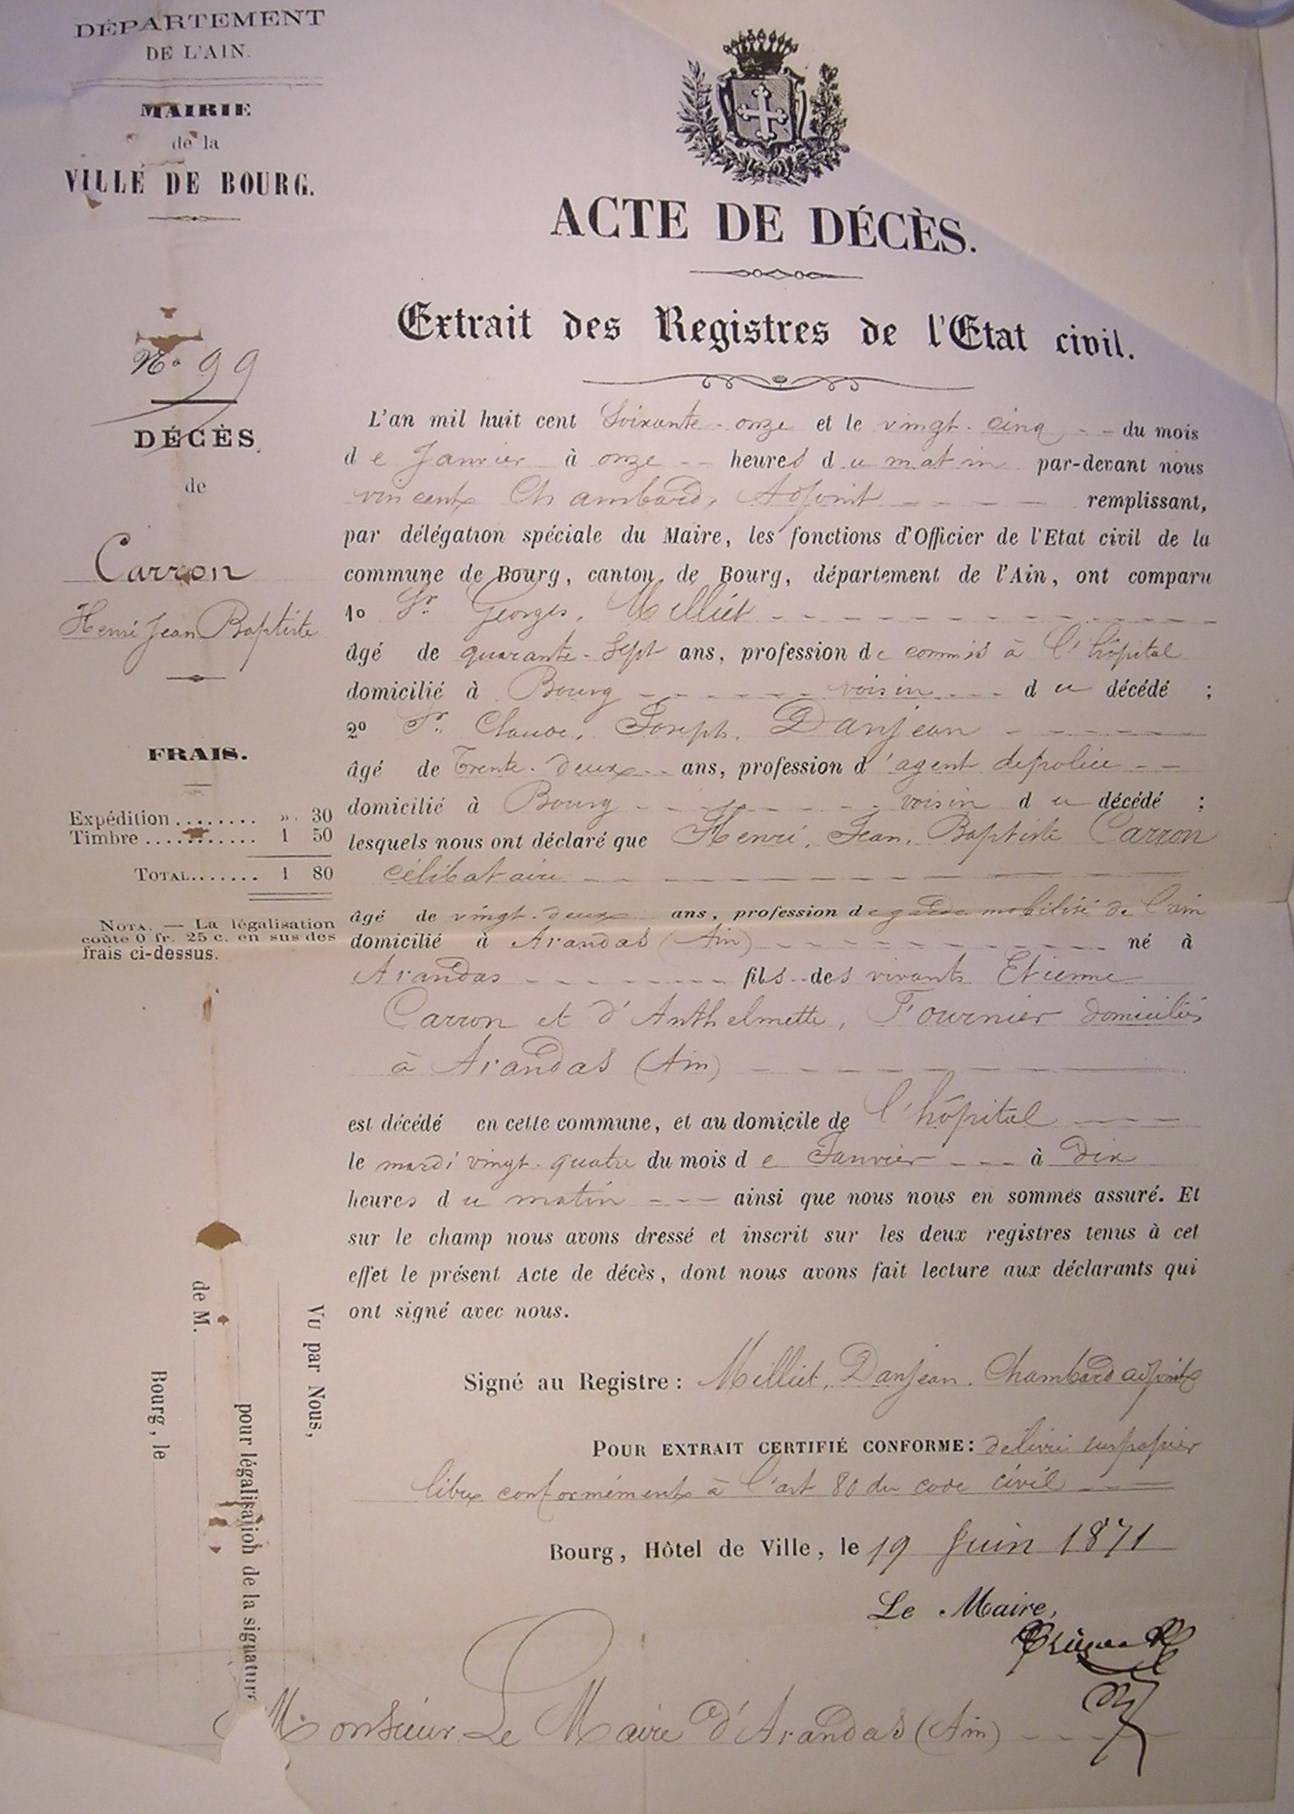 DÉPARTEMENT
DE L'AIN.
MAIRIE
de la
VILLE DE BOURG.
No 99
DÉCÈS
de
Carron
Henri Jean Baptiste
FRAIS.
Expédition ........ ». 30
Timbre ........... 1 50
TOTAL....... 1 80
NOTA. — La légalisation
coûte 0 fr. 25 c. en sus des
frais ci-dessus.
ACTE DE DÉCÈS.
Extrait des Registres de l'Etat civil.
L'an mil huit cent Soixante-onze et le vingt-cinq -- du mois
de Janvier à onze -- heures du matin par-devant nous
vincent Chambard, Adjoint ---- remplissant,
par délégation spéciale du Maire, les fonctions d'Officier de l'Etat civil de la
commune de Bourg, canton de Bourg, département de l'Ain, ont comparu
1o Sr. Georges, Milliet
âgé de quarante-sept ans, profession de commis à l'hôpital
domicilié à Bourg ------ voisin --- du décédé ;
2o Sr. Claude, Joseph, Danjean
âgé de Trente-deux -- ans, profession d'agent de police --
domicilié à Bourg ------- voisin du décédé ;
lesquels nous ont déclaré que Henri, Jean, Baptiste Carron
célibataire
âgé de vingt-deux ans, profession de garde mobilisé de l'ain
domicilié à Arandas (Ain) -------- né à
Arandas -------- fils des vivants Etienne
Carron et d'Anthelmette, Fournier domiciliés
à Arandas (Ain)
est décédé en cette commune, et au domicile de l'hôpital
le mardi vingt-quatre du mois de Janvier --- à Dix
heures du matin --- ainsi que nous nous en sommes assuré. Et
sur le champ nous avons dressé et inscrit sur les deux registres tenus à cet
effet le présent Acte de décès, dont nous avons fait lecture aux déclarants qui
ont signé avec nous.
Signé au Registre : Milliet, Danjean, Chambard adjoint
POUR EXTRAIT CERTIFIÉ CONFORME: délivré sur papier
libre conformément à l'art 80 du code civil
Bourg, Hôtel de Ville, le 19 Juin 1871
Le Maire,
Monsieur Le Maire d'Arandas (Ain)
VU par Nous,
pour légalisation de la signature
de M.
Bourg, le